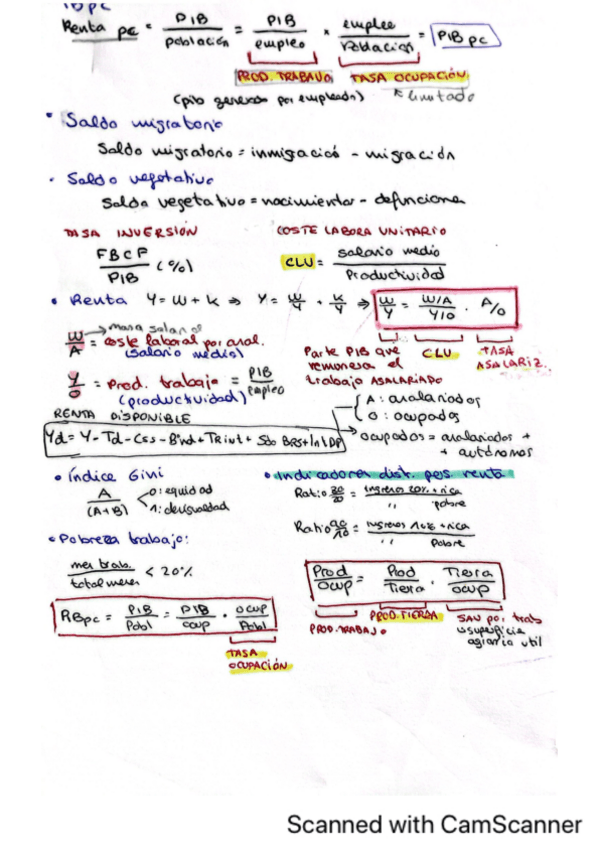 Renta pc = PIB / población = PIB / empleo × empleo / Población = PIB pc
PROD. TRABAJO TASA OCUPACIÓN
(pib generado por empleado) limitado
• Saldo migratorio
Saldo migratorio = inmigració - migración
• Saldo vegetativo
Saldo vegetativo = nacimientos - defunciones
TASA INVERSIÓN COSTE LABORA UNITARIO
FBCF / PIB (%) CLU = salario medio / Productividad
• Renta Y = W + K ⇒ Y = W/Y + K/Y ⇒ W/Y = W/A / Y/O · A/O
→ masa salarial
W/A = coste laboral por asal. (salario medio)
Parte PIB que remunera el trabajo ASALARIADO
CLU
TASA ASALARIZ.
Y/O = Prod. trabajo = PIB / empleo
(productividad)
A: asalariados
O: ocupados
RENTA DISPONIBLE
Yd = Y - Td - CSS - Bºnd + TRint + Sdo
→ ocupados = asalariados +
+ autónomos
• Índice Gini
A / (A+B) 0: equidad
1: desigualdad
• Indicadores dist. pers. renta
Ratio 20/20 = ingresos 20% + rica / " pobre
Ratio 90/10 = ingresos 10% + rica / " Pobre
• Pobreza trabajo:
mes trab. / total meses < 20%
Prod / Ocup = Prod / Tierra · Tierra / ocup
PROD. TRABAJO
PROD. TIERRA
SAU por trab
superficie
agraria util
RBpc = PIB / Pobl = PIB / ocup · ocup / Pobl
TASA
OCUPACIÓN
Scanned with CamScanner